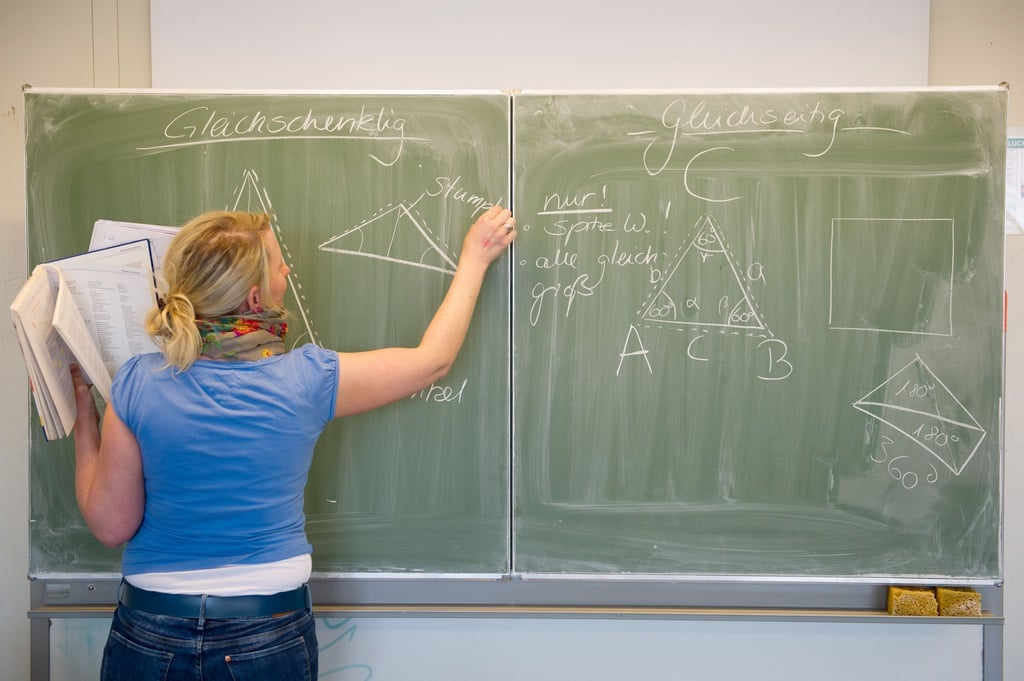 Gleichschenklig
Gleichseitig
C
nur!
• spitze W. !
• alle gleich
groß
60°
b
a
60°
α
β
60°
A
C
B
180°
180°
360°